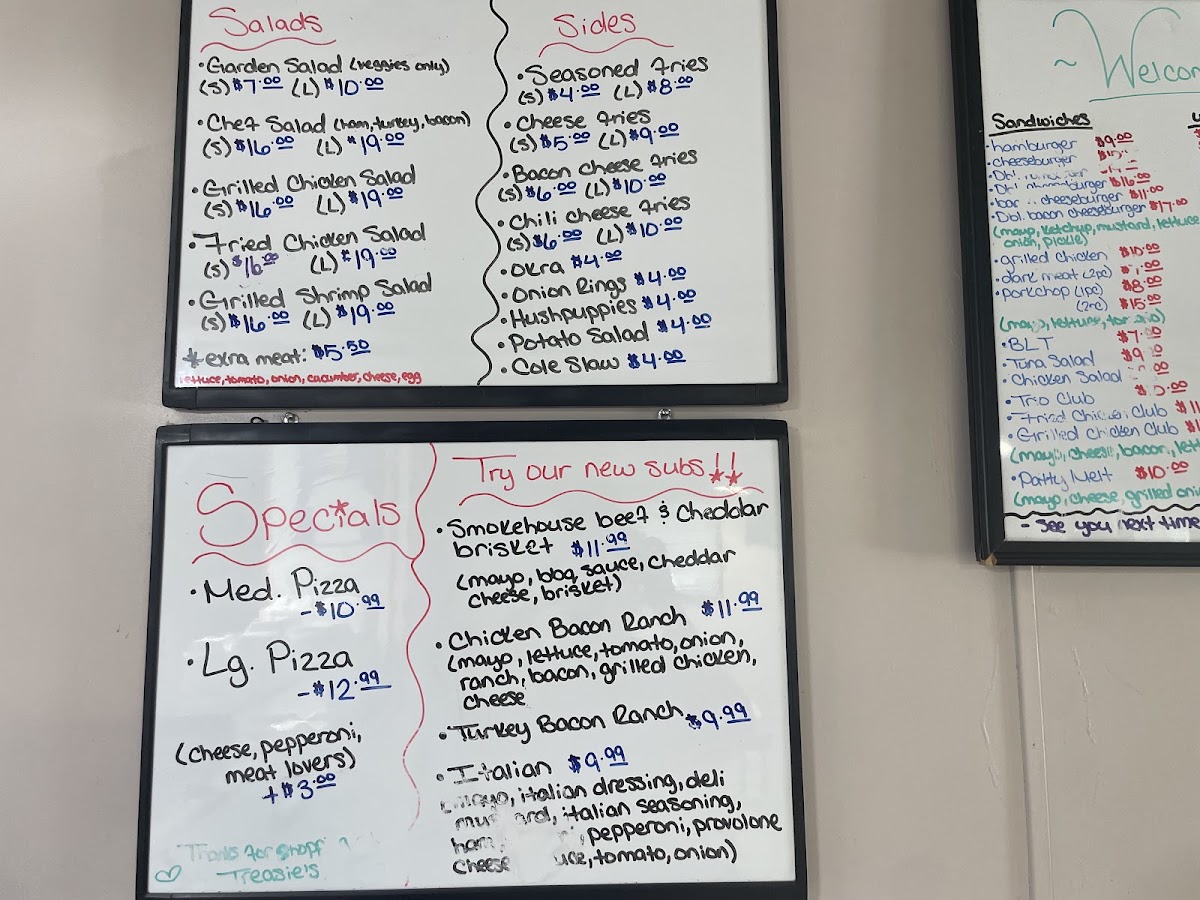 Salads
• Garden Salad (veggies only)
(S) $7.00 (L) $10.00
• Chef Salad (ham, turkey, bacon)
(S) $16.00 (L) $19.00
• Grilled Chicken Salad
(S) $16.00 (L) $19.00
• Fried Chicken Salad
(S) $16.00 (L) $19.00
• Grilled Shrimp Salad
(S) $16.00 (L) $19.00
* extra meat: $5.50
lettuce, tomato, onion, cucumber, cheese, egg
Sides
• Seasoned Fries
(S) $4.00 (L) $8.00
• Cheese Fries
(S) $5.00 (L) $9.00
• Bacon Cheese Fries
(S) $6.00 (L) $10.00
• Chili Cheese Fries
(S) $6.00 (L) $10.00
• Okra $4.00
• Onion Rings $4.00
• Hushpuppies $4.00
• Potato Salad $4.00
• Cole Slaw $4.00
Specials
• Med. Pizza
- $10.99
• Lg. Pizza
- $12.99
(Cheese, pepperoni,
meat lovers)
+ $3.00
Thanks for
Treasie's
Try our new subs!!
• Smokehouse beef & Cheddar
brisket $11.99
(mayo, bbq sauce, cheddar
cheese, brisket)
• Chicken Bacon Ranch $11.99
(mayo, lettuce, tomato, onion,
ranch, bacon, grilled chicken,
cheese
• Turkey Bacon Ranch $9.99
• Italian $9.99
mayo, italian dressing, deli
italian seasoning,
ham, pepperoni, provolone
cheese tomato, onion)
~ Welcom
Sandwiches
• hamburger $9.00
• cheeseburger
• Dbl.
• Dbl. $16.00
cheeseburger $11.00
• Dbl. bacon cheeseburger $17.00
(mayo, ketchup, mustard, lettuce
onion, pickle)
• grilled chicken $10.00
• dark meat (2pc)
• porkchop (1pc) $8.00
(2pc) $15.00
(mayo, lettuce,
• BLT
• Tuna Salad
• Chicken Salad
• Trio Club
• Fried Chicken Club
• Grilled Chicken Club
(mayo, cheese, bacon,
• Patty Melt $10.00
(mayo, cheese, grilled
- See you next time